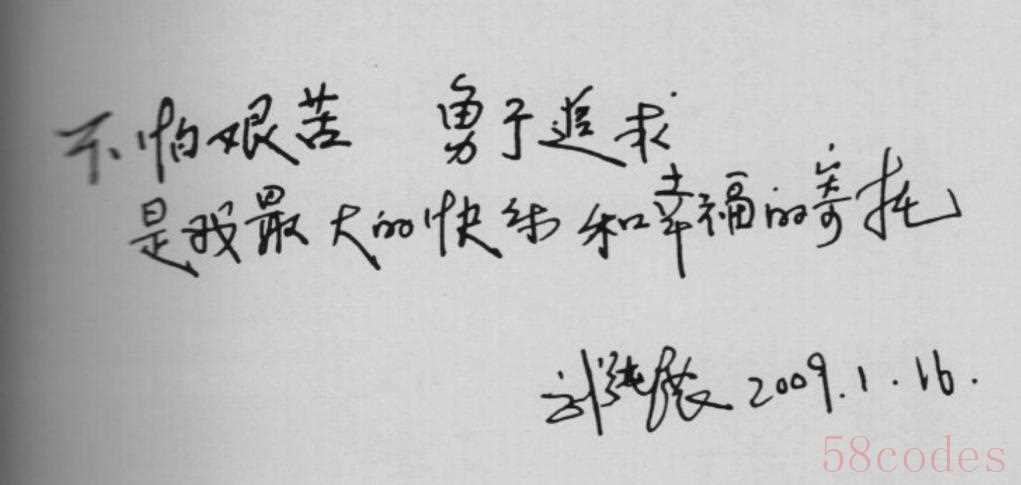 不怕艰苦 勇于追求
是我最大的快乐和幸福的寄托
刘纯 2009.1.16.
58codes